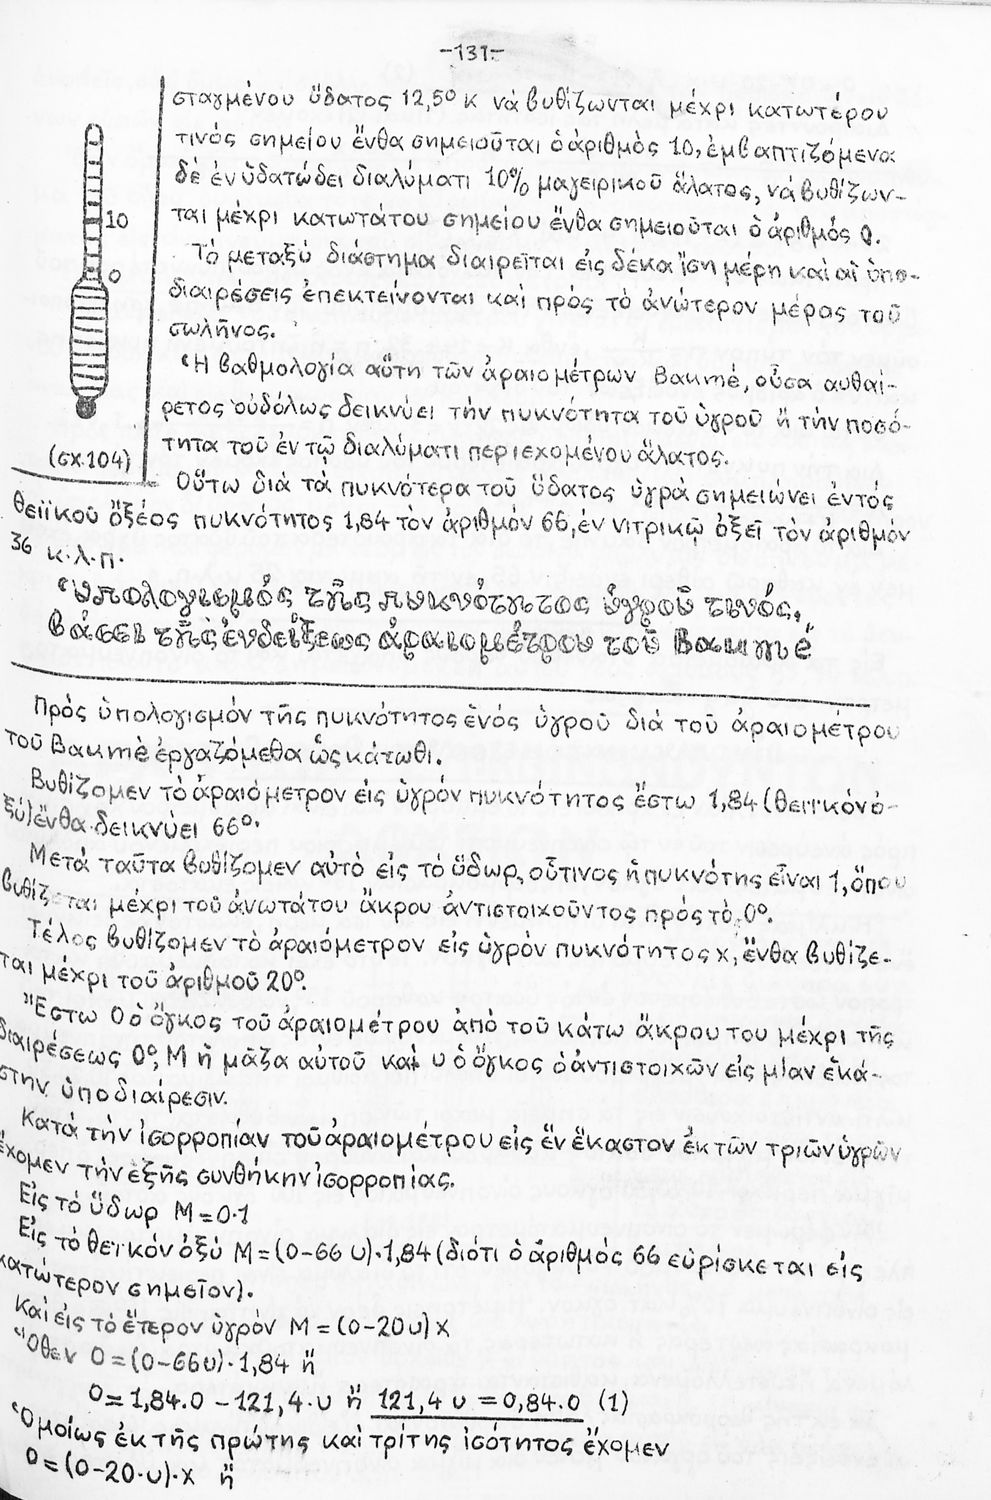 -131-
σταγμένου ὕδατος 12,5° κ νά βυθίζωνται μέχρι κατωτέρου
τινός σημείου ἔνθα σημειοῦται ὁ ἀριθμός 10, ἐμβαπτιζόμενα
δέ ἐν ὑδατώδει διαλύματι 10% μαγειρικοῦ ἅλατος, νά βυθίζων-
ται μέχρι κατωτάτου σημείου ἔνθα σημειοῦται ὁ ἀριθμός 0.
Τό μεταξύ διάστημα διαιρεῖται εἰς δέκα ἴση μέρη καί αἱ ὑπο-
διαιρέσεις ἐπεκτείνονται καί πρός τό ἀνώτερον μέρος τοῦ
σωλῆνος.
Ἡ βαθμολογία αὕτη τῶν ἀραιομέτρων Baumé, οὖσα αυθαί-
ρετος οὐδόλως δεικνύει τήν πυκνότητα τοῦ ὑγροῦ ἤ τήν ποσό-
τητα τοῦ ἐν τῷ διαλύματι περιεχομένου ἅλατος.
10
0
(σχ.104)
Οὕτω διά τά πυκνότερα τοῦ ὕδατος ὑγρά σημειώνει ἐντός
θειϊκοῦ ὀξέος πυκνότητος 1,84 τόν ἀριθμόν 66, ἐν νιτρικῷ ὀξεῖ τόν ἀριθμόν
36 κ.λ.π.
Ὑπολογισμός τῆς πυκνότητος ὑγροῦ τινός,
βάσει τῆς ἐνδείξεως ἀραιομέτρου τοῦ Baumé
Πρός ὑπολογισμόν τῆς πυκνότητος ἑνός ὑγροῦ διά τοῦ ἀραιομέτρου
τοῦ Baumè ἐργαζόμεθα ὡς κάτωθι.
Βυθίζομεν τό ἀραιόμετρον εἰς ὑγρόν πυκνότητος ἔστω 1,84 (θειικόν ὀ-
ξύ) ἔνθα δεικνύει 66°.
Μετά ταῦτα βυθίζομεν αὐτό εἰς τό ὕδωρ, οὗτινος ἡ πυκνότης εἶναι 1, ὅπου
βυθίζεται μέχρι τοῦ ἀνωτάτου ἄκρου ἀντιστοιχοῦντος πρός τό 0°.
Τέλος βυθίζομεν τό ἀραιόμετρον εἰς ὑγρόν πυκνότητος x, ἔνθα βυθίζε-
ται μέχρι τοῦ ἀριθμοῦ 20°.
Ἔστω Ο ὁ ὄγκος τοῦ ἀραιομέτρου ἀπό τοῦ κάτω ἄκρου του μέχρι τῆς
διαιρέσεως 0°, Μ ἡ μᾶζα αὐτοῦ καί υ ὁ ὄγκος ὁ ἀντιστοιχῶν εἰς μίαν ἑκά-
στην ὑποδιαίρεσιν.
Κατά τήν ἰσορροπίαν τοῦ ἀραιομέτρου εἰς ἕν ἕκαστον ἐκ τῶν τριῶν ὑγρῶν
ἔχομεν τήν ἑξῆς συνθήκην ἰσορροπίας.
Εἰς τό ὕδωρ Μ = Ο·1
Εἰς τό θειικόν ὀξύ Μ = (Ο-66 υ)·1,84 (διότι ὁ ἀριθμός 66 εὑρίσκεται εἰς
κατώτερον σημεῖον).
Καί εἰς τό ἕτερον ὑγρόν Μ = (Ο-20υ) x
Ὅθεν Ο = (Ο-66υ)·1,84 ἤ
Ο = 1,84.Ο - 121,4·υ ἤ 121,4 υ = 0,84.Ο (1)
Ὁμοίως ἐκ τῆς πρώτης καί τρίτης ἰσότητος ἔχομεν
Ο = (Ο-20·υ)·x ἤ